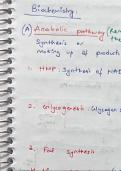 Biochemistry.
(A) Anabolic pathway
Synthesis or
making up of product
1. HMP - Synthesis of
2. Glycogenesis - Glycogen
3. Fat synthesis